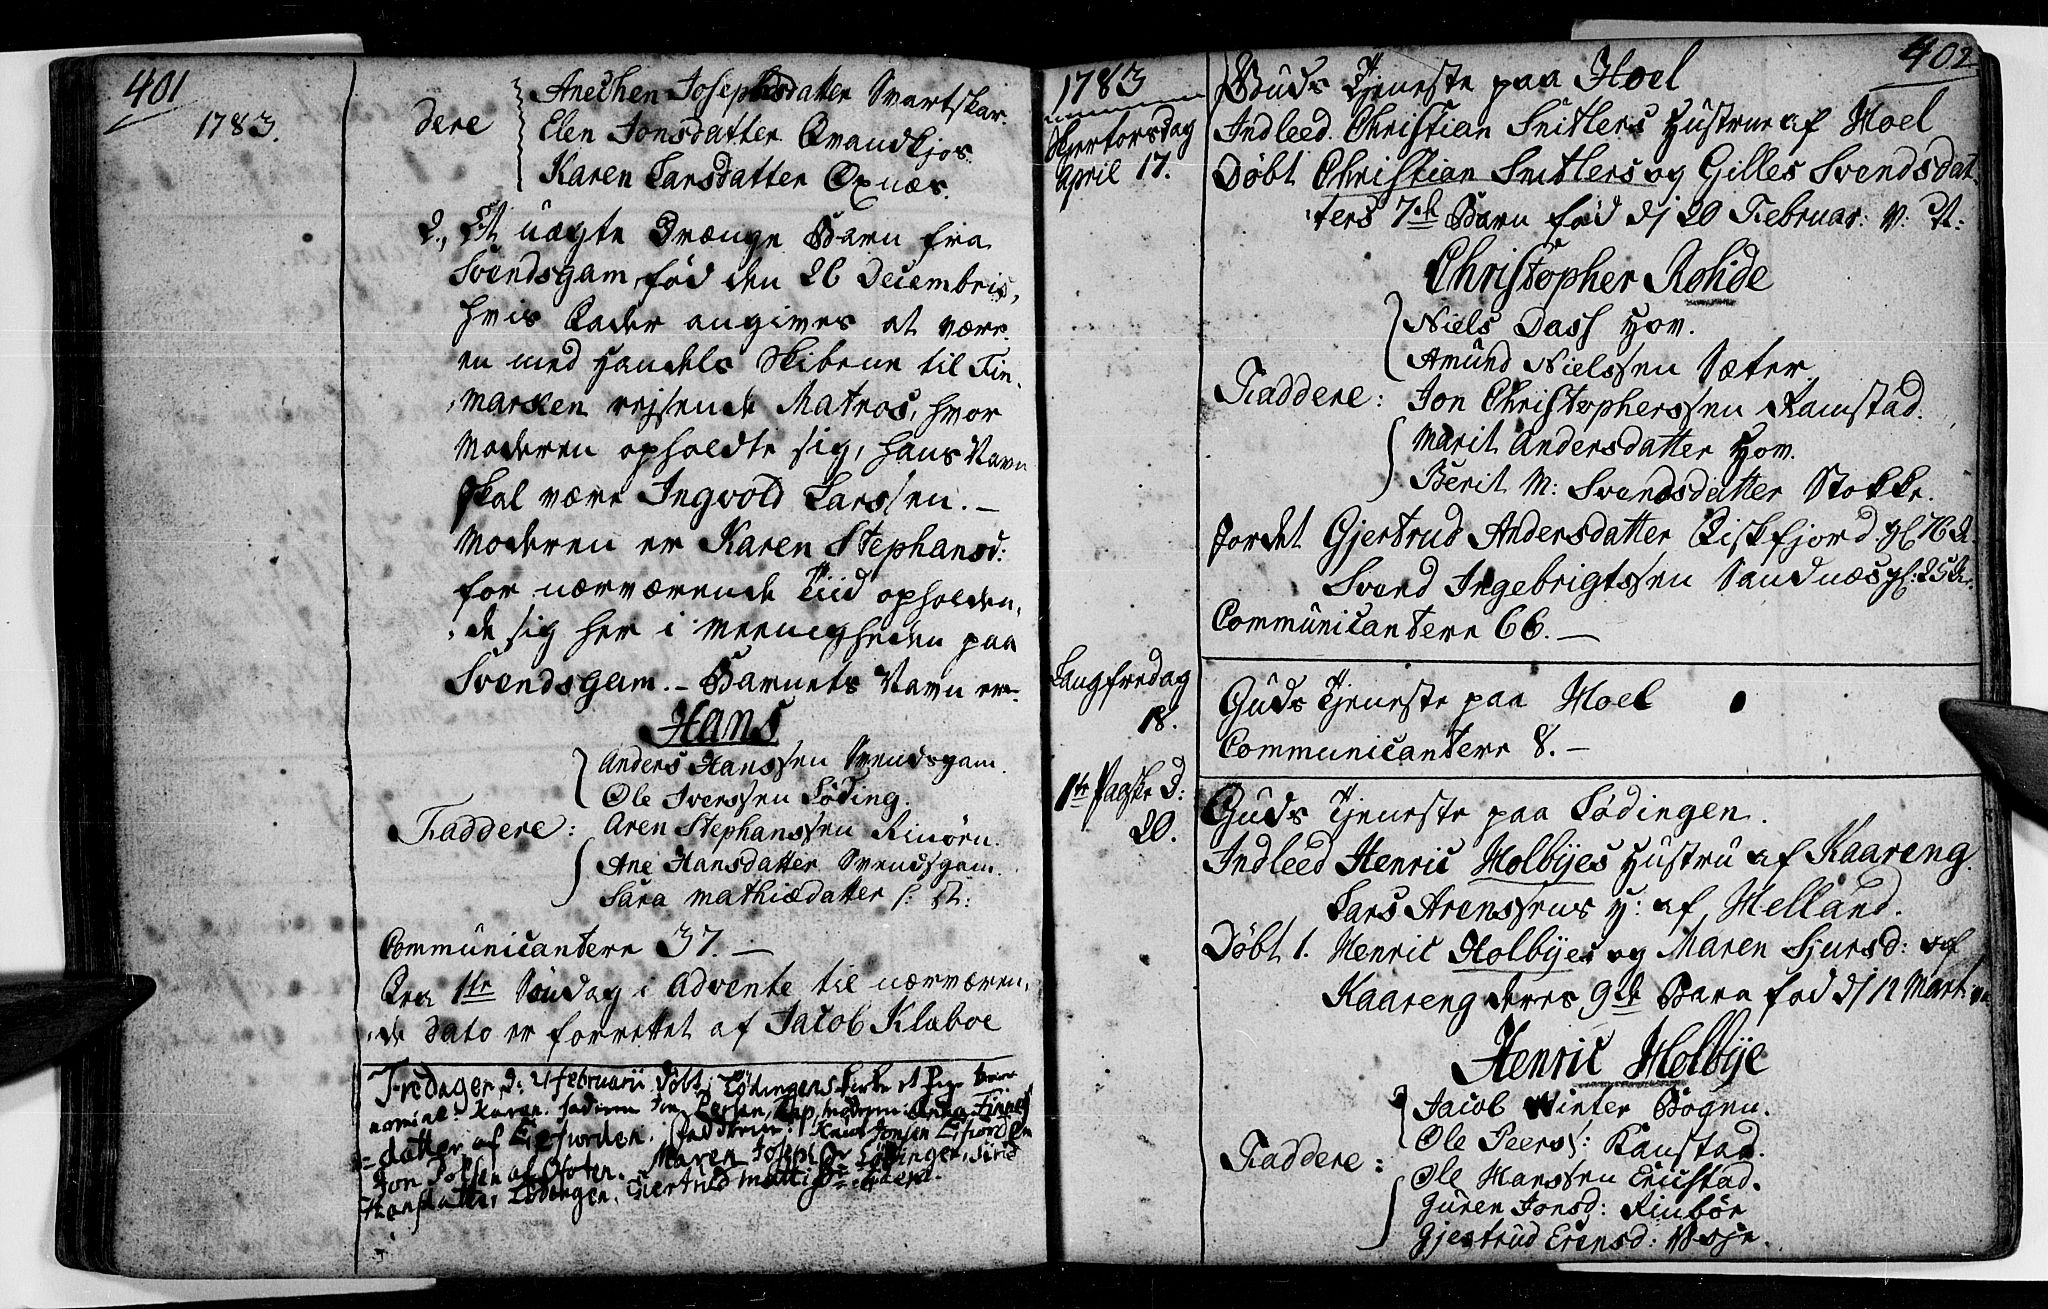 401
1783.
dere
Anechen Josephsdatter Svartskar.
Elen Jonsdatter Qvandkjos.
Karen Larsdatter Oxnæs.
2., Et uægte Drænge Barn fra
Svendsgam, fød den 26 Decembris,
hvis Fader angives at være
en med Handels Skibene til Fin-
marken rejsende Matros, hvor
Moderen opholdte sig, hans Navn
skal være Ingvold Larssen. —
Moderen er Karen Stephansd:
for nærværende Tiid opholden-
de sig her i Meenigheden paa
Svendsgam. — Barnets Navn er
Hans
Anders Hanssen Svendsgam.
Ole Iverssen Løding.
Faddere: Aren Stephanssen Rinørn.
Ane Hansdatter Svendsgam.
Sara Mathiædatter
Communicantere 37. —
Fra 1te Søndag i Advente til nærværen-
de dato er forrettet af Jacob Klæboe
Fredagen d: 21 februarii Døbt i Lødingens kirke et Pige Barn
nomine: Karen. faderen Jon Persen, Lap, moderen: Anna Finnes
datter af Efiorden. faddrene: Knud Jonsen Efiorden
Jon Polsen af Ofoten. Maren Joseph Dr Lødingen, Siri
Hansdatter Lødingen. Giertrud Mattis Dr
402
1783
Skjertorsdag
April 17.
Guds Tjeneste paa Hoel
Indleed. Christian Snitlers Hustrue af Hoel
Døbt Christian Snitlers og Gilles Svendsdat-
ters 7de Barn fød dj 20 Februar: v: A:
Christopher Rohde
Niels Dass Hov.
Amund Nielssen Sæter
Faddere: Jon Christopherssen Ramstad.
Marit Andersdatter Hov.
Berit M: Svendsdatter Stokke.
Jordet Gjertrud Andersdatter Fiskfjord gl. 76 A.
Svend Ingebrigtssen Sandnæs gl: 25 A.
Communicantere 66. —
Langfredag
18.
Guds Tjeneste paa Hoel
Communicantere 8. —
1te Paaske D:
20.
Guds Tjeneste paa Lødingen.
Indleed Henric Holbyes Hustru af Kaareng.
Lars Arenssens H: af Helland.
Døbt 1. Henric Holbyes og Maren Sjursd: af
Kaareng deres 9de Barn fød dj 12 Mart.
Henric Holbye
Jacob Winter Bogen.
Ole Peerss: Kanstad.
Faddere: Ole Hanssen Erichstad.
Guren Jonsd: Rinbør
Gjertrud Erensd: